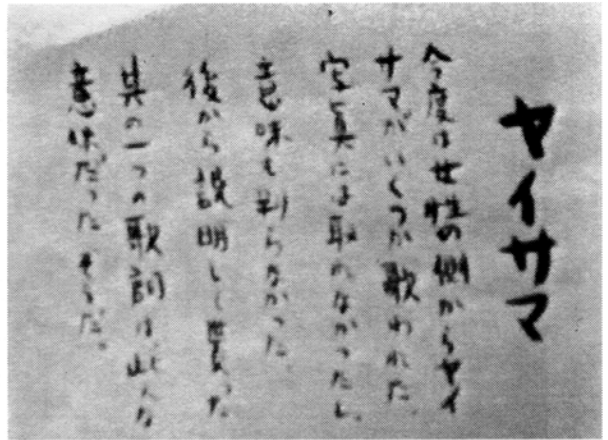 ヤイサマ
今度は女性の側からヤイ
サマがいくつか歌われた
写真には取れなかったし
意味も判らなかった
後から説明して貰った
其の一つの歌詞は此んな
意味だったそうだ。